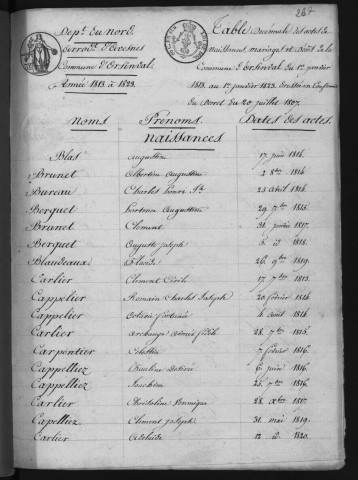 267
Dép.t du Nord.
Arrond.t d'Avesnes
Commune d'Orsinval.
Année 1813 à 1823.
Table Décennale des actes de
naissances, mariages et Décès de la
Commune d'Orsinval du 1.er janvier
1813 au 1.er janvier 1823. dressée en Conformité
du Décret du 20 juillet 1807.
Noms Prénoms Dates des actes.
Naissances
Blas Augustin 17 juin 1814.
Brunet Albertine Augustine 2 8bre 1814.
Bureau Charles henri J.h 25 avril 1816.
Berquet hortense Augustine 29 7bre 1815.
Brunet Clément 31 janvier 1817.
Berquet Auguste Joseph 5 id 1818.
Blaudeaux 26 9bre 1819.
Carlier Clément Cérile 17 7bre 1813.
Cappelier Romain Charles Joseph 20 février 1814.
Cappelier 4 août 1814.
Carlier Archange 28 7bre 1815.
Carpentier 7 février 1816.
Cappelliez Pauline Désirée 6 juin 1816.
Cappelliez Joachim 25 7bre 1816.
Carlier Christoline Véronique 28 Xbre 1817.
Capelliez Clément Joseph 31 mai 1819.
Carlier Adélaïde 12 id 1820.